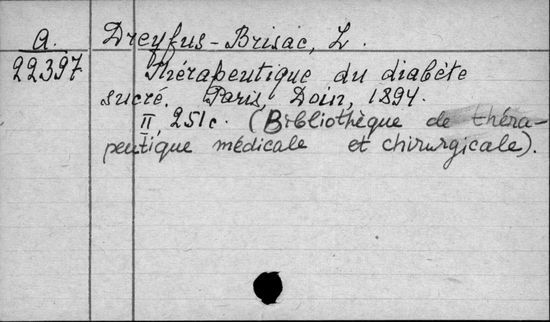 A.
22397
Dreyfus-Brisac, L.
Thérapeutique du diabète
sucré. Paris, Doin, 1894.
II, 251c. (Bibliothèque de théra-
peutique médicale et chirurgicale).